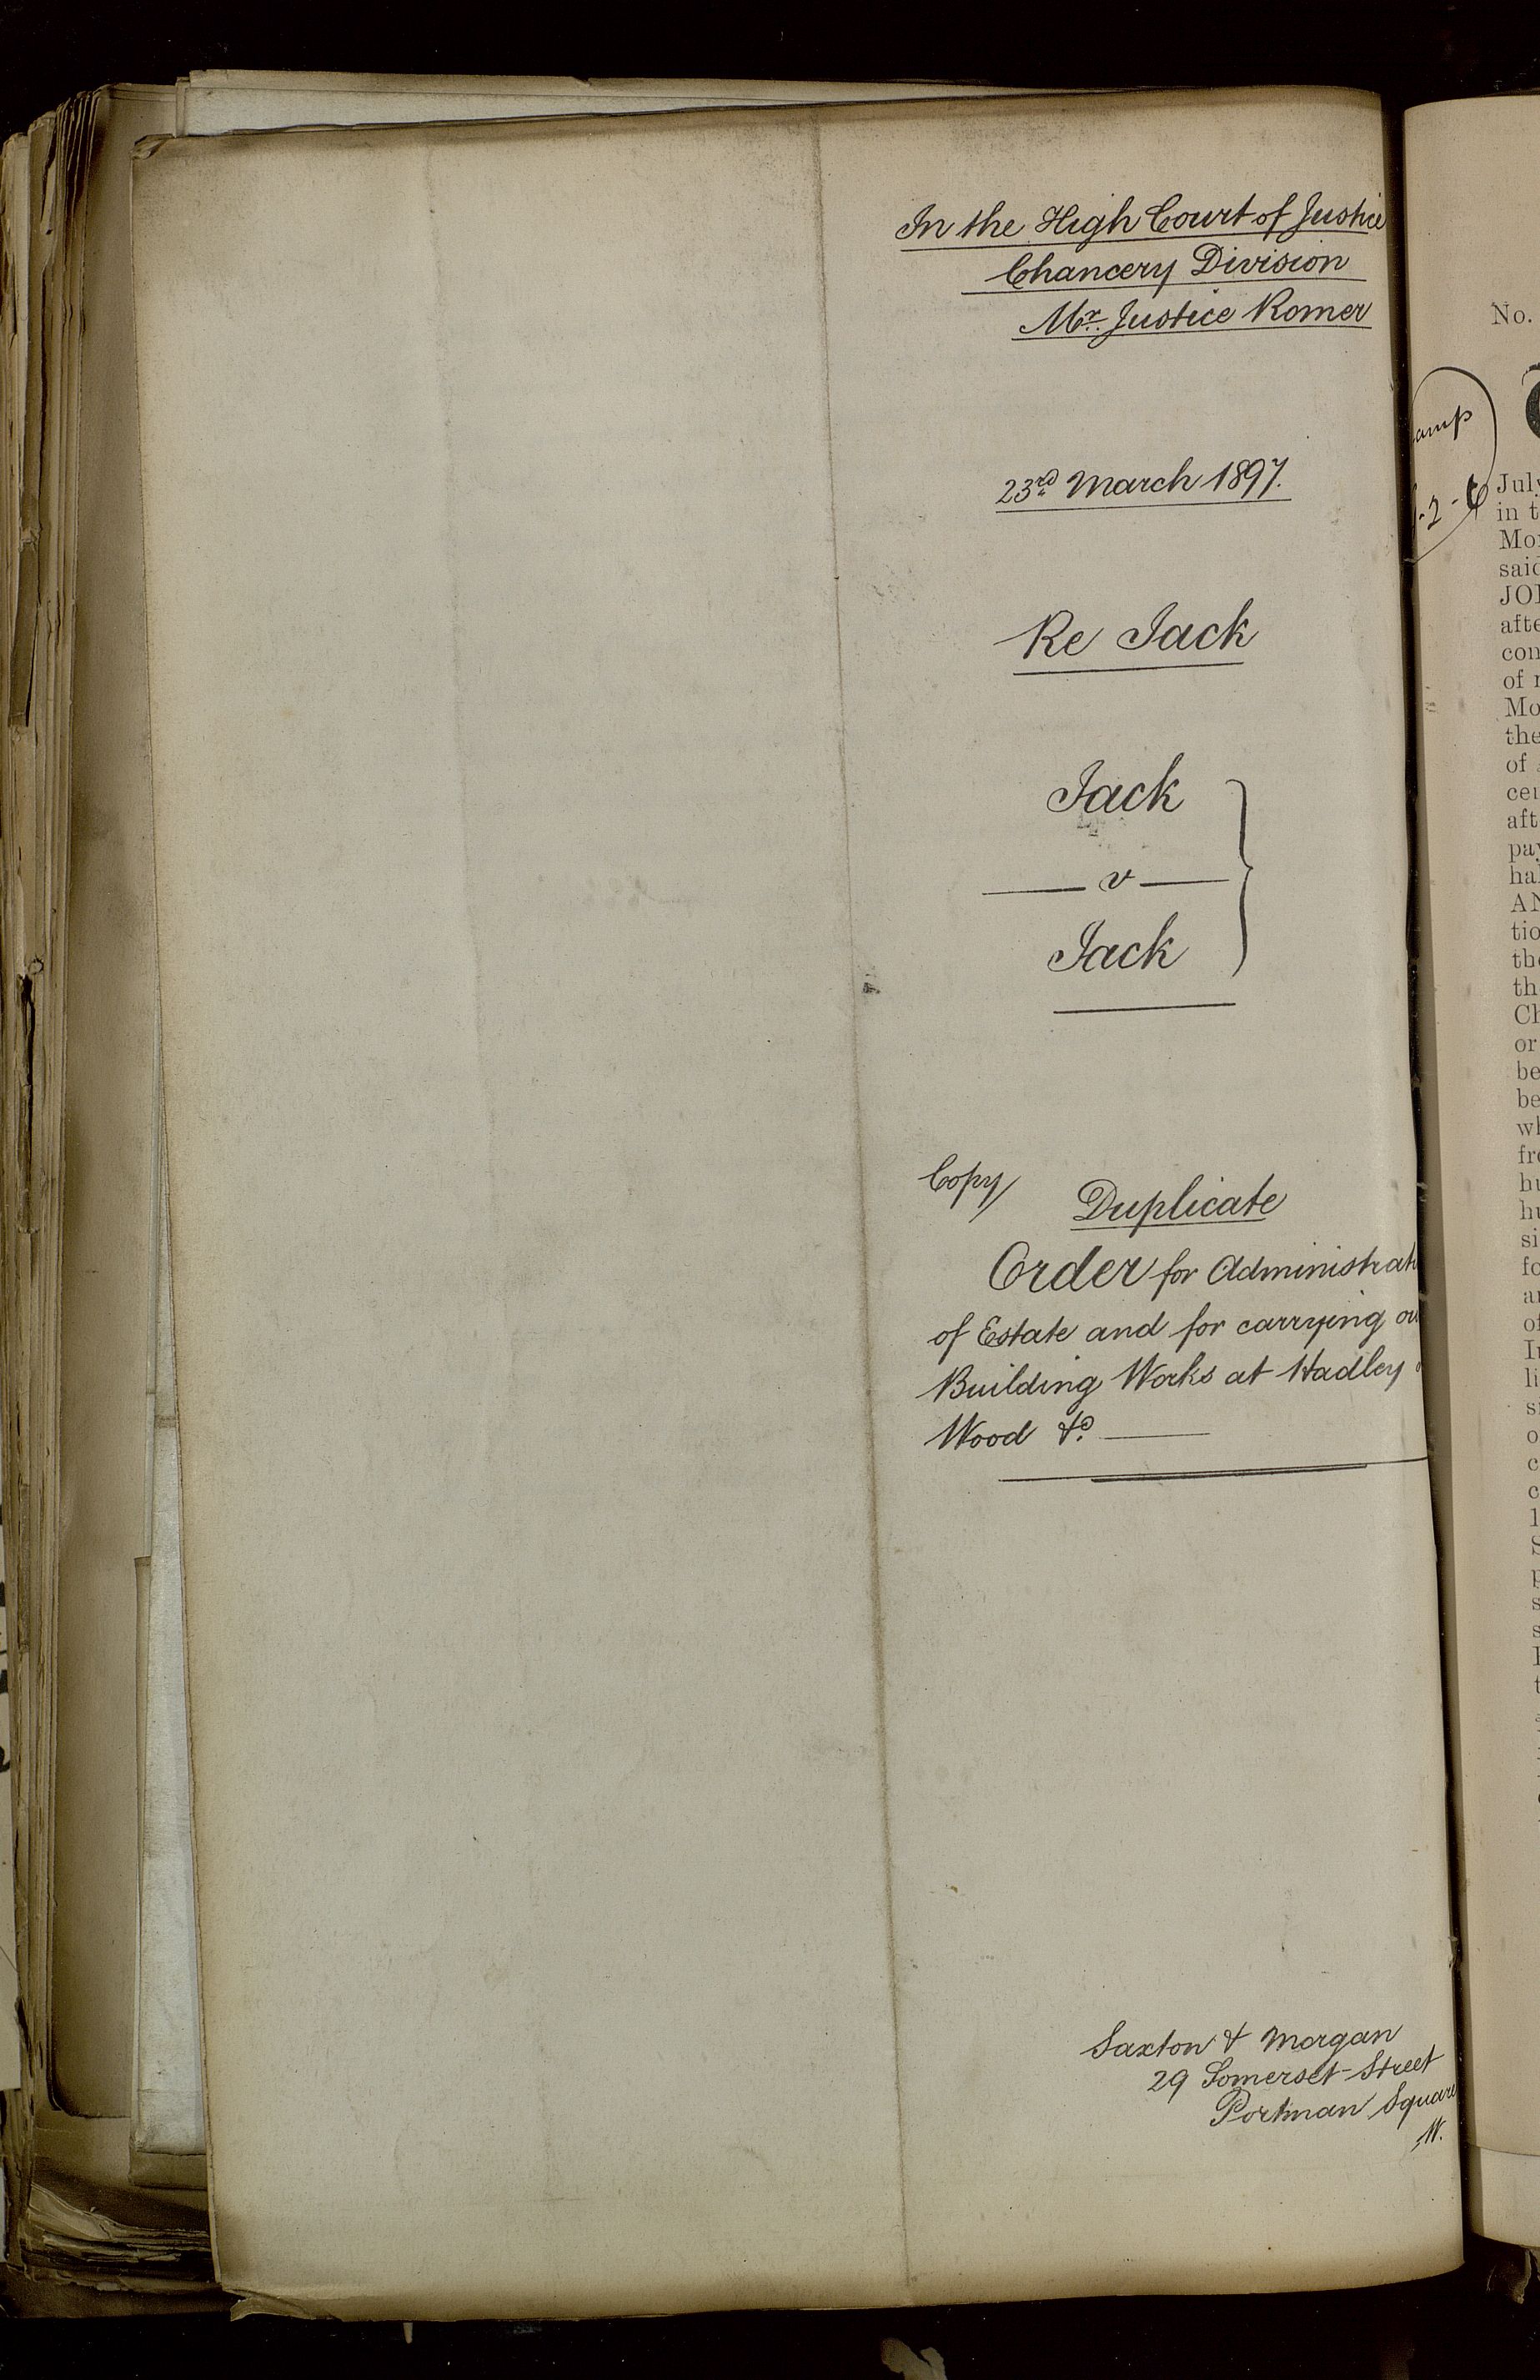 In the High Court of Justice
Chancery Division
Mr. Justice Romer
23rd March 1897.
Re Jack
Jack
v
Jack
Copy/
Duplicate
Order for Administrat
of Estate and for carrying ou
Building Works at Hadley
Wood &c.
Saxton & Morgan
29 Somerset Street
Portman Square
W.
No.
amp
-2-6
July
in t
Mo
said
JO
afte
con
of
Mo
the
of
cer
aft
pay
hal
AN
tio
the
th
Ch
or
be
be
wh
fre
hu
hu
si
fo
a
of
I
li
s
o
c
c
1
S
p
s
s
t